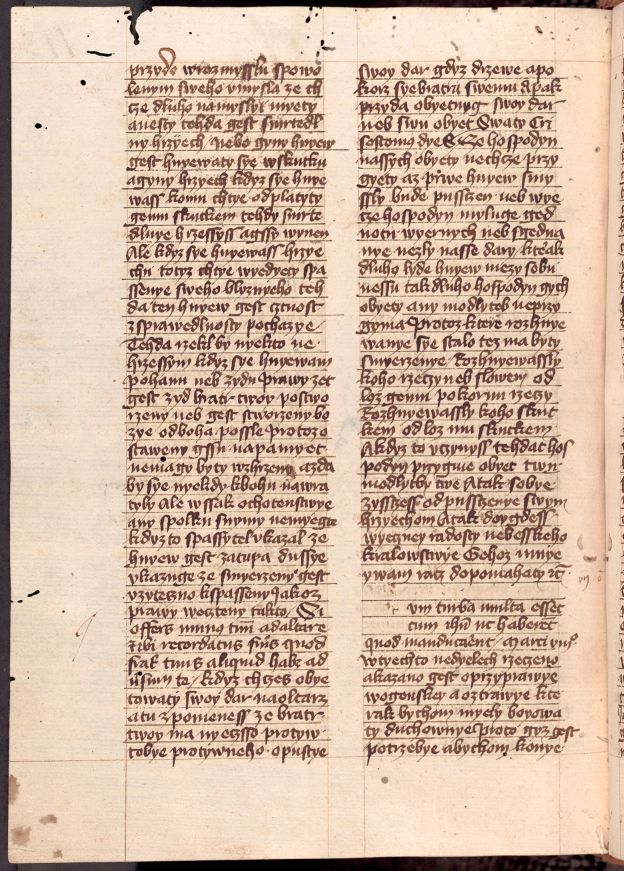 przyde wrozmysslu spowo
lenym sweho vmysla ze ch
cze dluho namyslyt myety
a westy tehda gest smrtedl
ny hrzyech Nebo gyny hnyew
gest hnyewaty sye wskutku
a gyny hrzyech kdyz sye hnye
wass komu chtye odplatyty
gemu skutkem tehdy smrte
dlnye hrzessyss agssy wynen
Ale kdyz sye hnyewass hrzye
chu totiz chtye wyedyety spa
ssenye sweho blyznyeho teh
da ten hnyew gest cztnost
zsprawedlnosty pochazye
Tehda rzekl by nyekto ne
hrzessym kdyz sye hnyewam
pohanu neb zydu prawy zet
gest zyd bratr twoy postwo
rzeny neb gest stworzeny bo
zye odboha possle protoz o
staweny gssu napamyet
nemagy byty wzhrzeny azda
by sye nyekdy kbohu nawra
tyly Ale wssak ochotenstwye
any spolku snymy nemyegte
kdyz to spassytel vkazal ze
hnyew gest zatupa dussye
vkazuge ze smyerzeny gest
vzyteczno kspasseny Jakoz
prawy weczteny takto Si
offers munus tuum ad altare
et ibi recordatus fueris quod
frater tuus aliquid habet ad
uersum te kdyz chczes obye
towaty swoy dar naoltarz
a tu zpomeness ze bratr
twoy ma nyeczso protyw
tobye protywneho opustye
swoy dar gdyz drzewe a po
korz sye bratru swemu a potak
przyda obyetuyg swoy dar
neb swu obyet Swaty Cri
sostomus dye Ze hospodyn
nassych obyety nechcze przy
gyety az prwe hnyew smy
ssly bude pusstzen neb wye
cze hospodyn myluge ged
notu wyernych neb sgedna
nye nezly nasse dary kterak
dluho lyde hnyew mezy sobu
nessu tak dluho hospodyn gych
obyety any modlyteb neprzy
gyma protoz ktere rozhnye
wanye sye stalo tez ma byty
smyerzenye Rozhnyewassly
koho rzeczy neb slowem od
loz gemu pokornu rzeczy
Rozhnyewassly koho skut
kem od loz mu skutkem
A kdyz to vczynyss tehdat hos
podyn przygme obyet twu
modlytby twe A tak sobye
zysstzess od pusstzenye swym
hrzyechom A tak doygdess
wyeczney radosty nebesskeho
kralowstwye Gehoz mnye
y wam racz dopomahaty etc
um turba multa esset
cum ihesu nec haberet
quod manducarent Marci
wtyechto nedyelech rzeczeno
a kazano gest o przyprawye
wogenskey a o ztrawye kte
rak bychom myely bogowa
ty duchownye proto gyz gest
potrzebye abychom konye